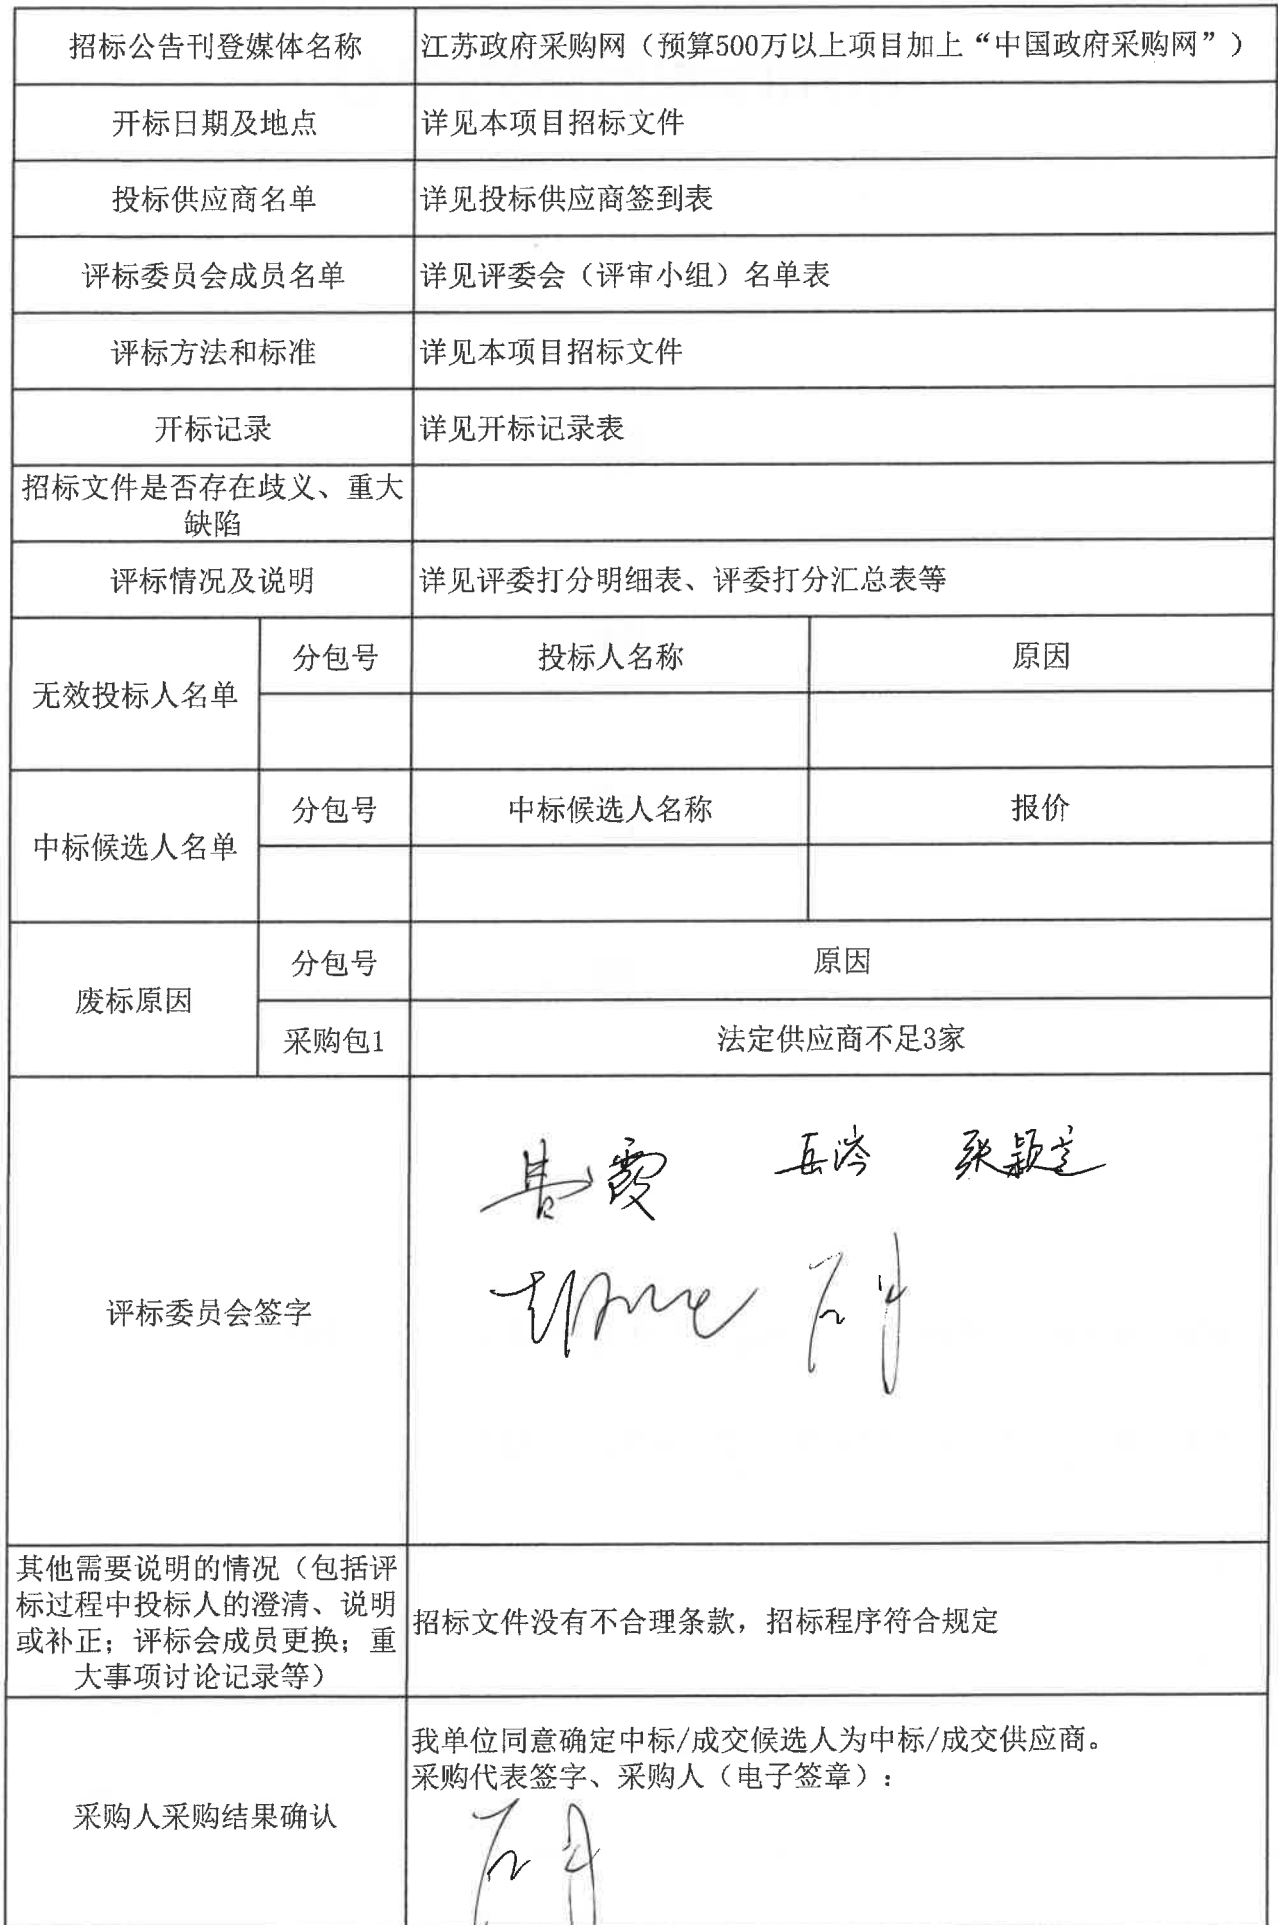 招标公告刊登媒体名称
江苏政府采购网（预算500万以上项目加上“中国政府采购网”）
开标日期及地点
详见本项目招标文件
投标供应商名单
详见投标供应商签到表
评标委员会成员名单
详见评委会（评审小组）名单表
评标方法和标准
详见本项目招标文件
开标记录
详见开标记录表
招标文件是否存在歧义、重大
缺陷
评标情况及说明
详见评委打分明细表、评委打分汇总表等
无效投标人名单
分包号
投标人名称
原因
中标候选人名单
分包号
中标候选人名称
报价
废标原因
分包号
原因
采购包1
法定供应商不足3家
评标委员会签字
霞
其他需要说明的情况（包括评
标过程中投标人的澄清、说明
或补正；评标会成员更换；重
大事项讨论记录等）
招标文件没有不合理条款，招标程序符合规定
采购人采购结果确认
我单位同意确定中标/成交候选人为中标/成交供应商。
采购代表签字、采购人（电子签章）：